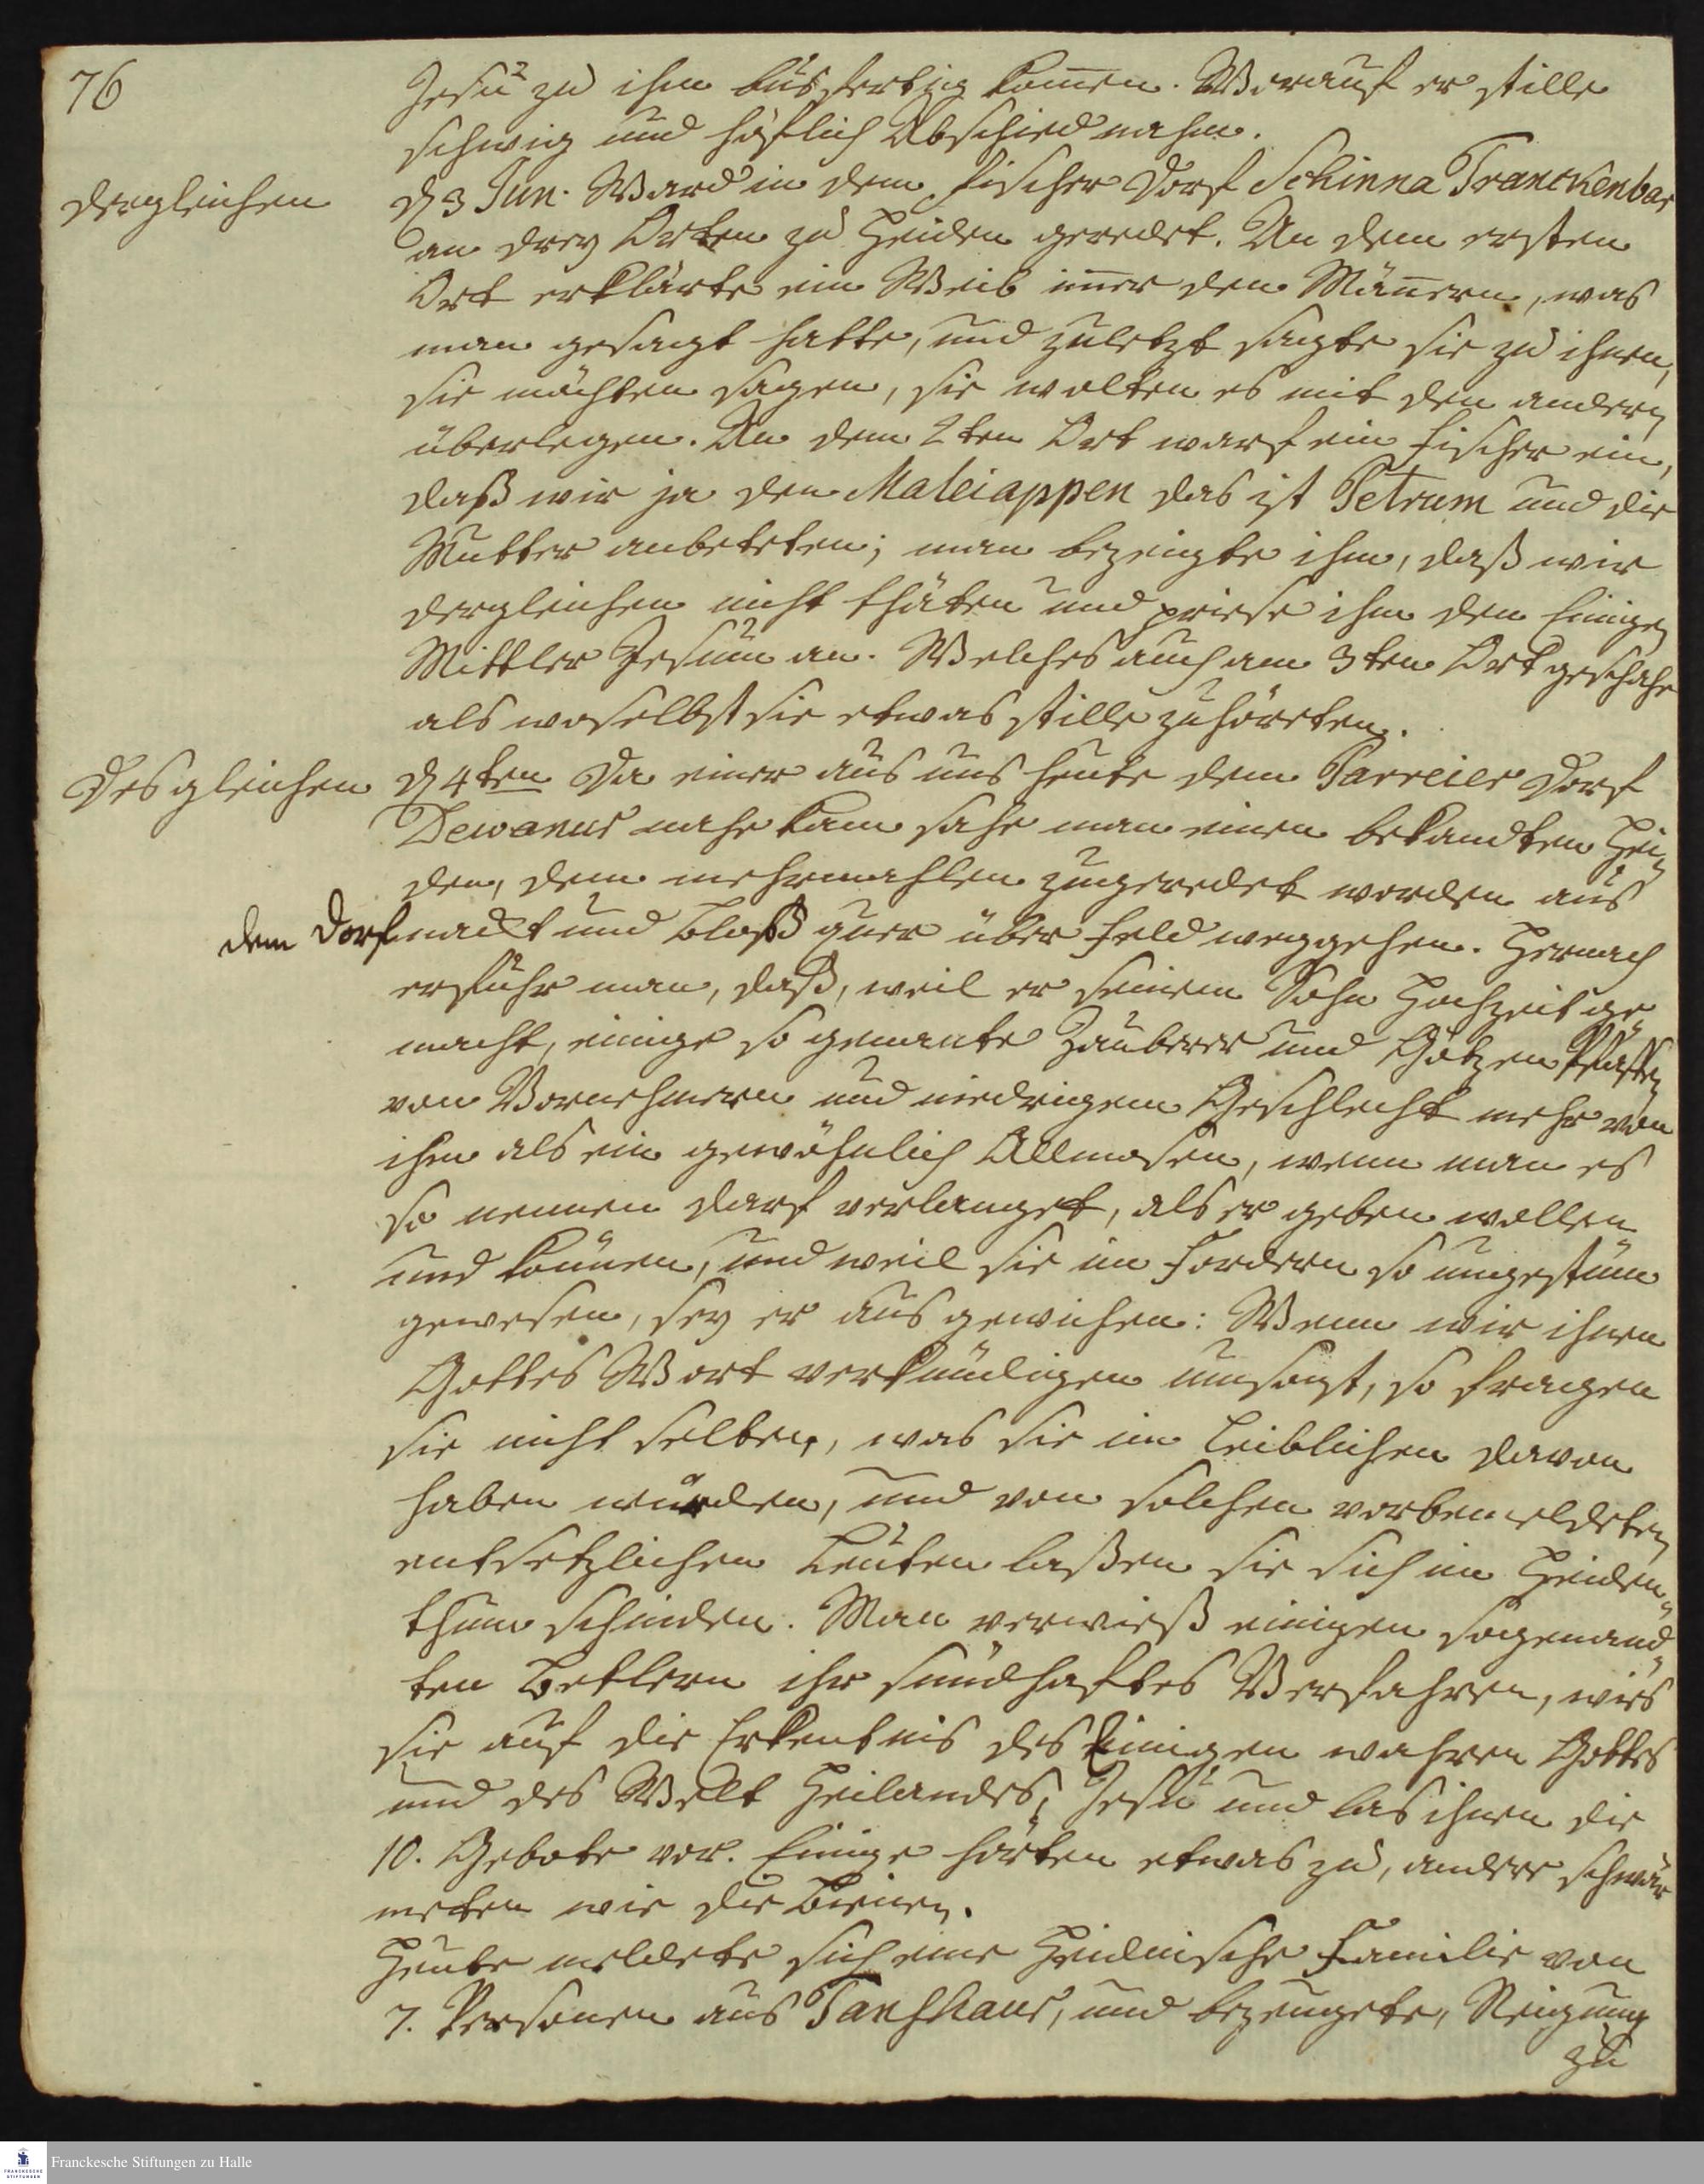 76
Jesu zu ihm bußfertig kom̅en. Worauf er stille
schwieg und höflich Abschied nahm.
dergleichen
d 3 Jun. Ward in dem fischer Dorf Schinna Tranckenbar
an drey Orten zu Heiden geredet. An dem ersten
Ort erklärte ein Weib im̅er den Män̅ern, was
man gesagt hatte, und zuletzt sagte sie zu ihnen,
sie möchten sagen, sie wolten es mit den andern
überlegen. An dem 2ten Ort warf ein fischer ein,
daß wir ja den Maleiappen das ist Petrum und die
Mutter anbeteten; man bezeigte ihm, daß wir
dergleichen nicht thäten und priese ihm den Einigen
Mittler Jesum an. Welches auch am 3ten Ort geschahe
als woselbst sie etwas stille zuhöreten.
Desgleichen
d 4ten Da einer aus uns heute dem Parreier Dorf
Dewanur nahe kam sahe man einen bekandten Hei-
den, dem mehrmahlen zugeredet worden aus
dem Dorf nackt und bloß quer über Feld weggehen. Hernach
erfuhr man, daß, weil er seinem Sohn Hochzeit ge
macht, einige so genante Zauberer und Götzen Pfaffen
von Vornehmern und niedrigem Geschlecht mehr von
ihm als ein gewöhnlich Allmosen, wenn man es
so nennen darf verlanget, als er geben wollen
und können, und weil sie im fordern so ungestüm
gewesen, sey er ausgewichen: Wenn wir ihnen
Gottes Wort verkündigen umsonst, so fragen
sie nicht selten, was sie im Leiblichen davon
haben würden, und von solchen vorbemeldeten
entsetzlichen Leuten laßen sie sich im Heiden-
thum schinden. Man verwieß einigen sogenand-
ten Bettlern ihr sündhaftes Verfahren, wies
sie auf die Erkentnis des Einigen wahren Gottes
und des Welt Heilandes, Jesu und las ihnen die
10. Gebote vor. Einige hörten etwas zu, andere schwär
meten wie die Bienen.
Heute meldete sich eine Heidnische Familie von
7. Personen aus Tanshaur, und bezeugete, Neigung
zu
Franckesche Stiftungen zu Halle